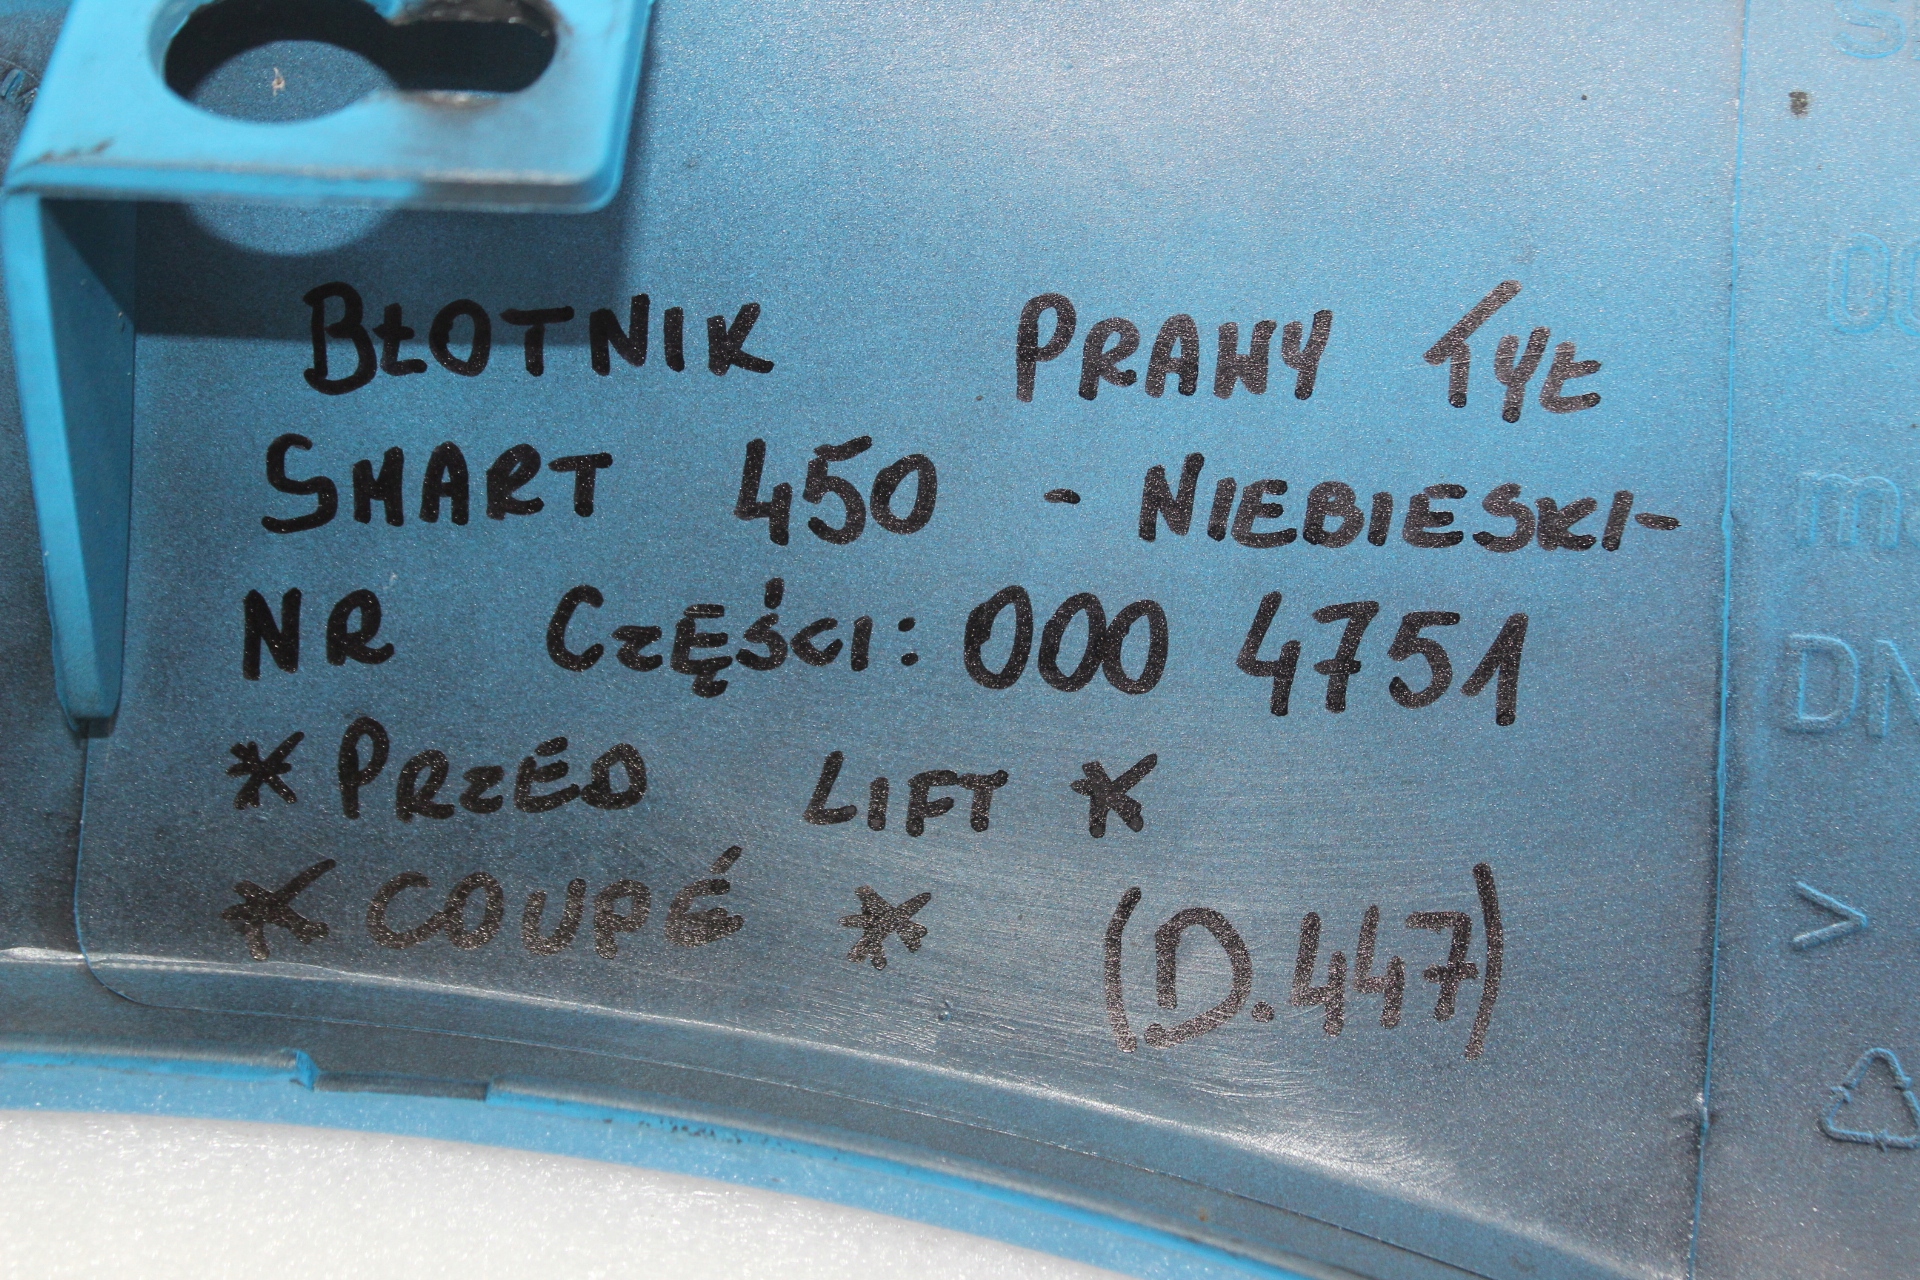 BŁOTNIK PRAWY TYŁ
SMART 450 - NIEBIESKI-
NR CZĘŚCI: 000 4751
*PRZED LIFT *
*COUPÉ * (D.447)
>